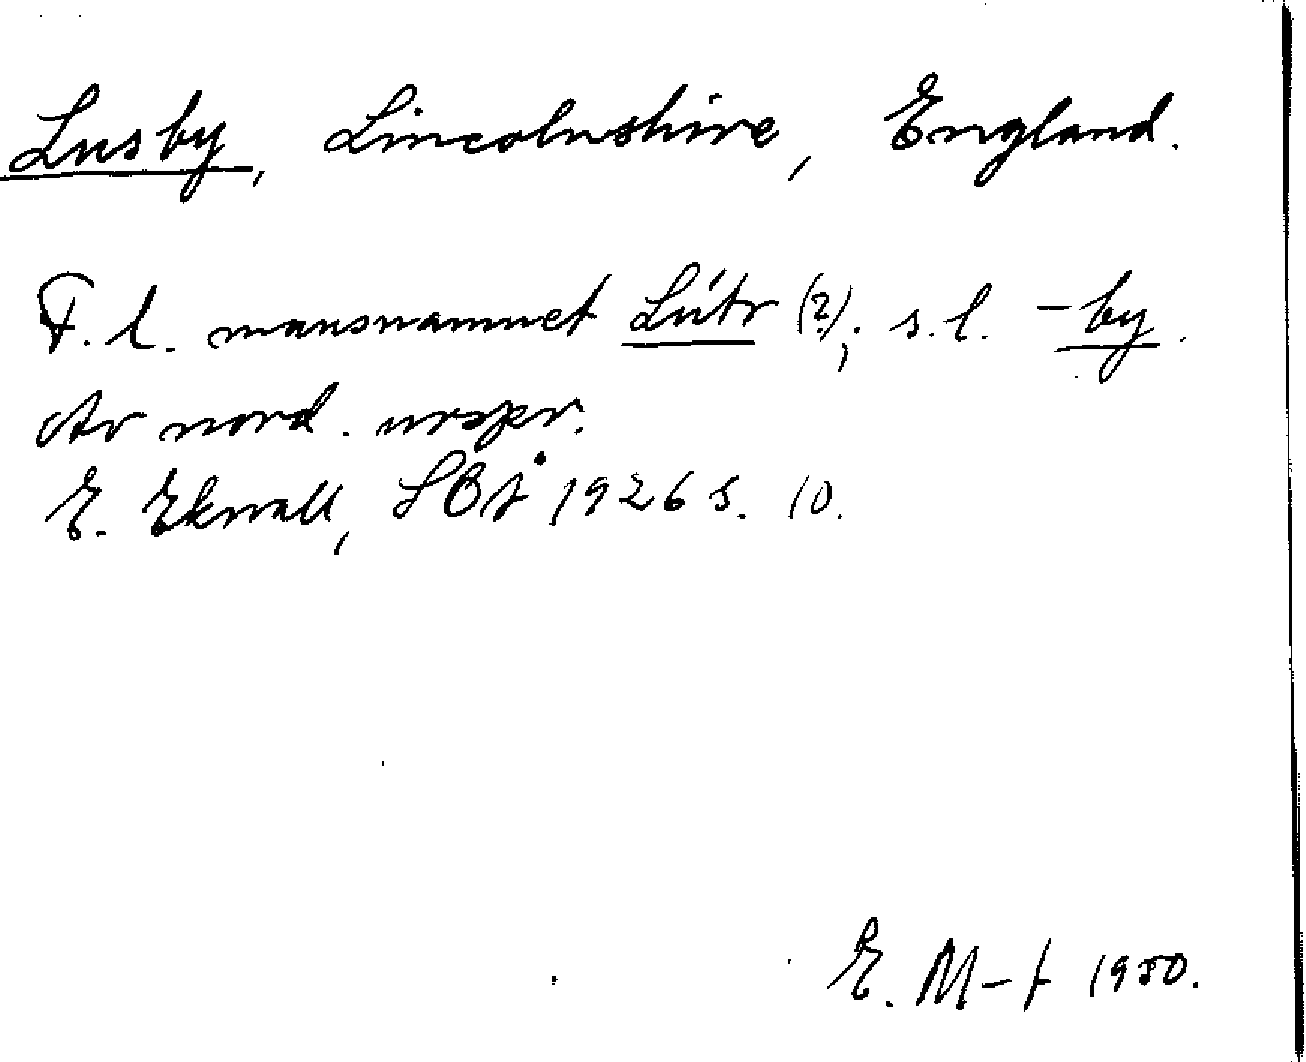 Lusby, Lincolnshire, England.
F. l. mansnamnet Lútr (?); s. l. -by.
Av nord. urspr.
E. Ekwall, SOÅ 1926 s. 10.
E. M-t 1950.